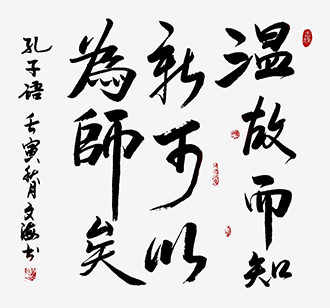 温故而知
新可以
為師矣
孔子语 壬寅秋月文海书